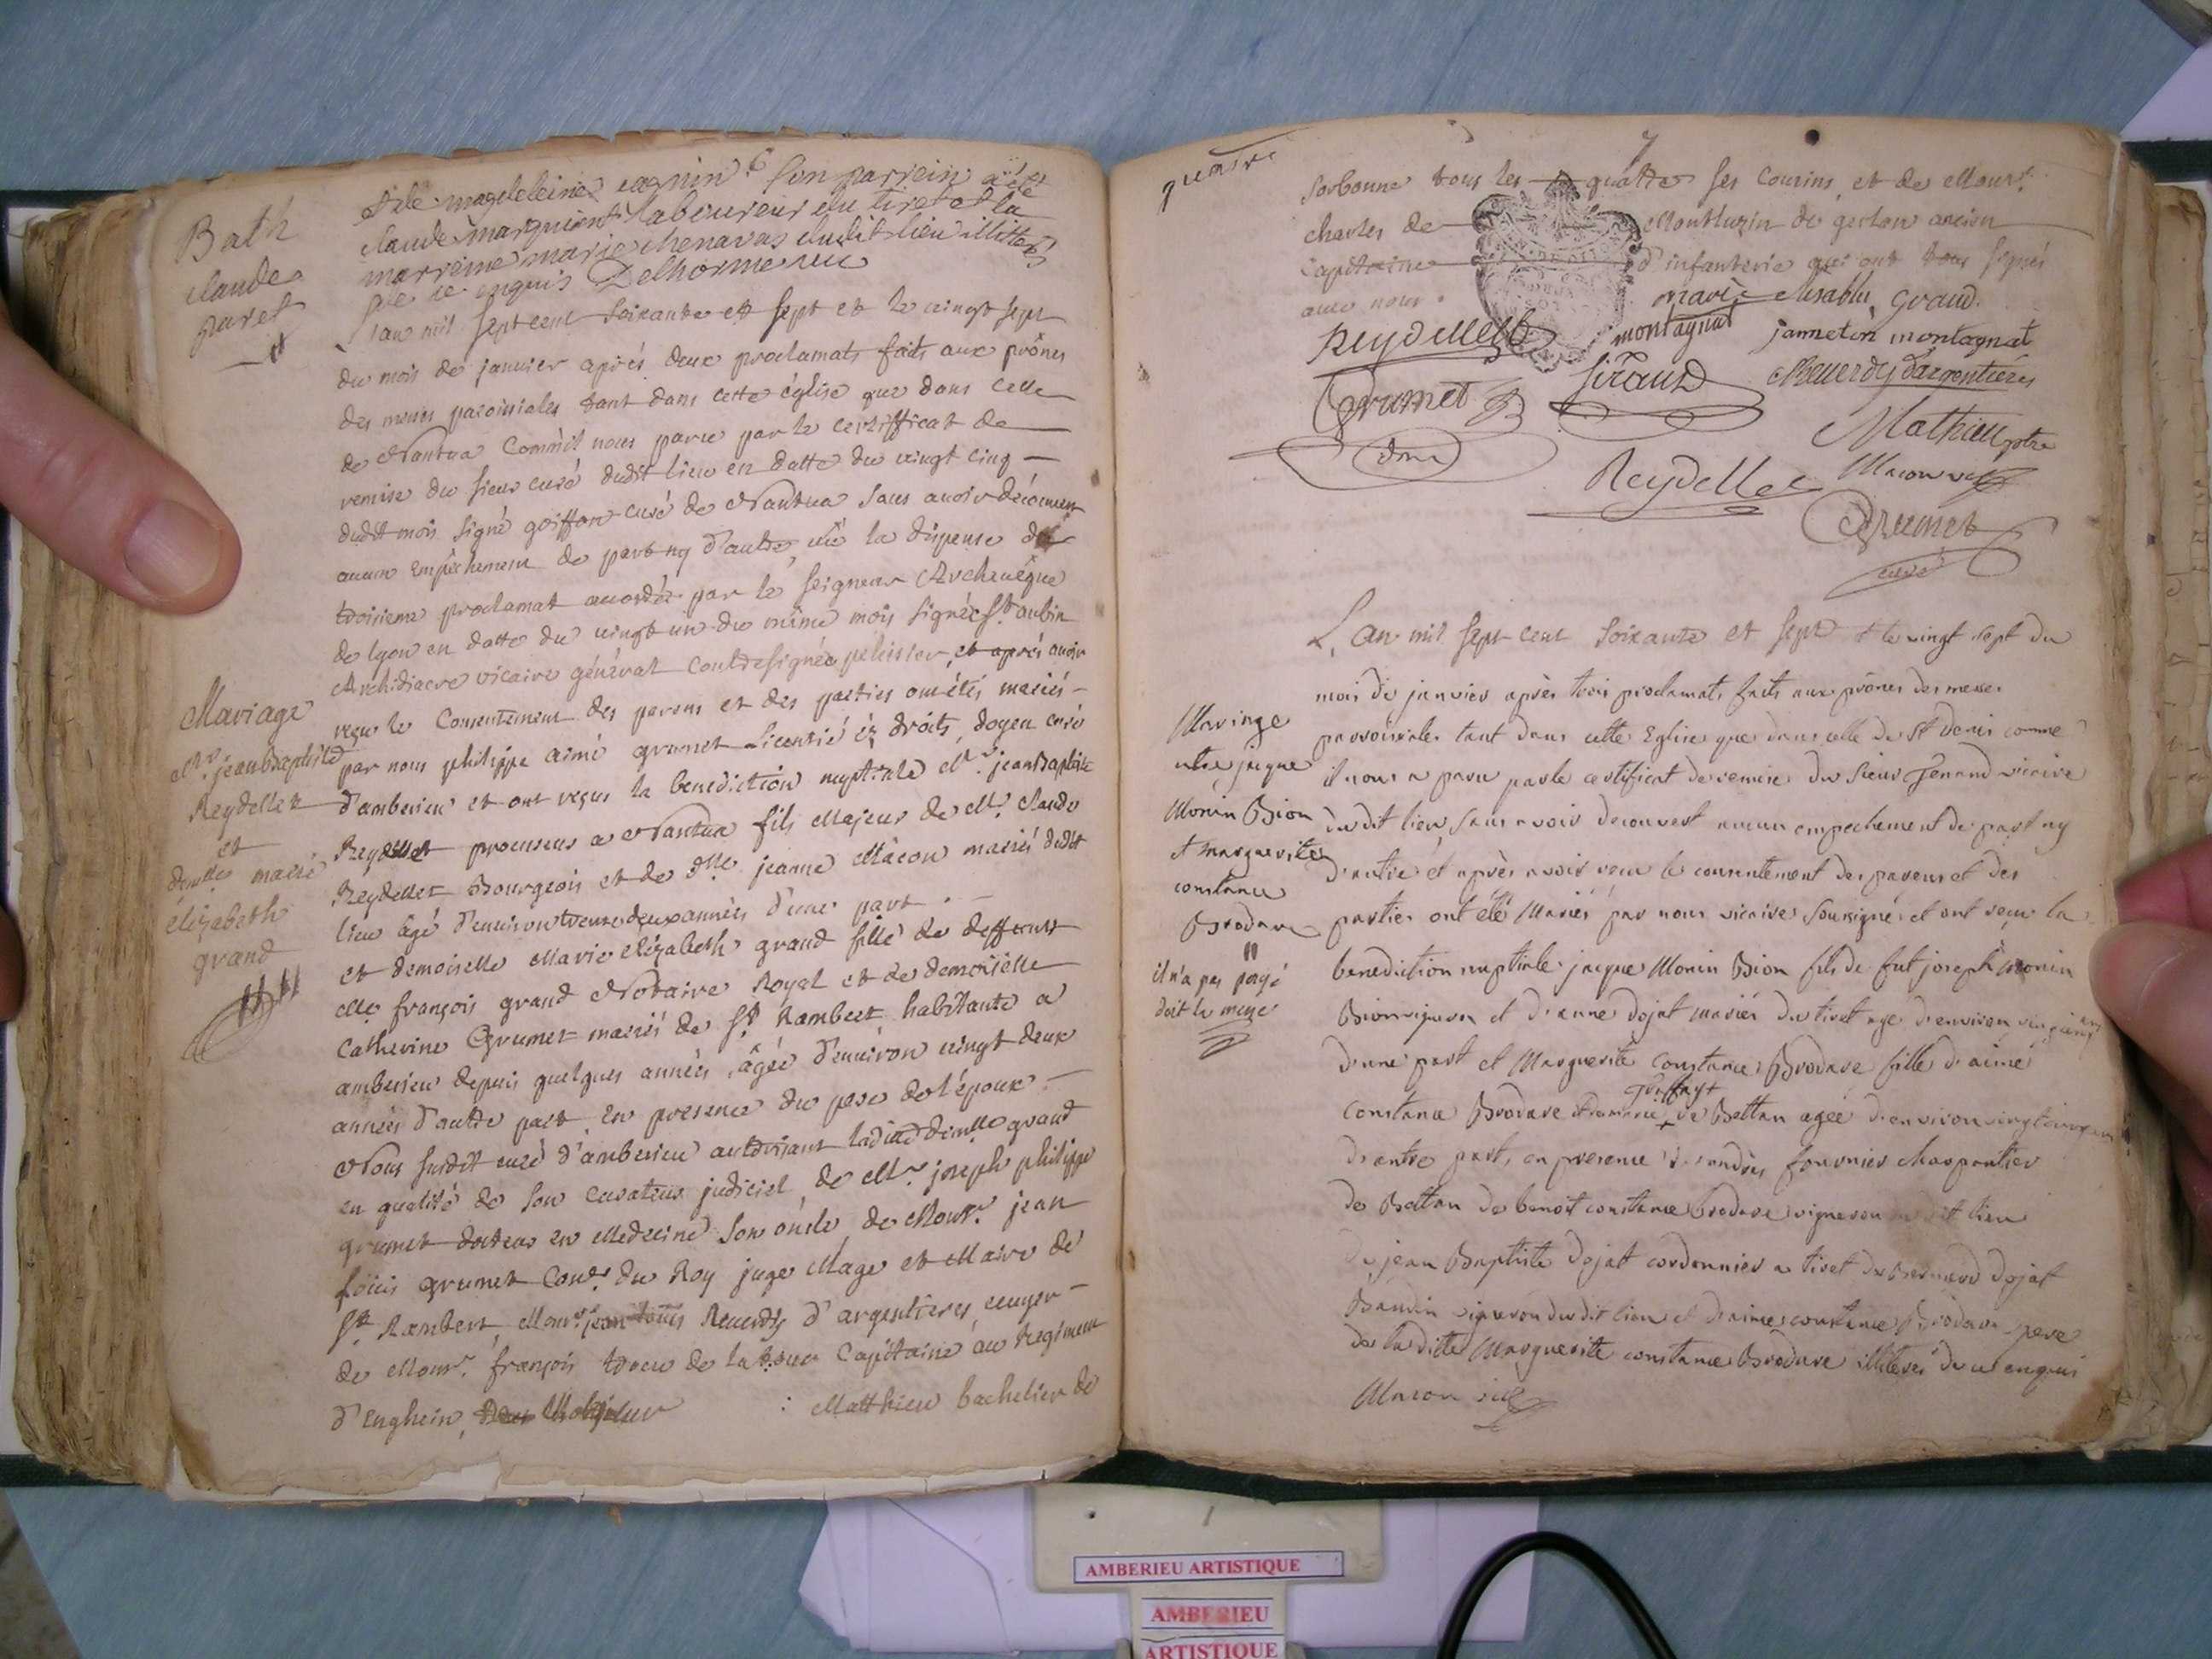 Bath
claude
paret
et de magdeleine cagnin son parrein a été
claude marguient laboureur du tiret et la
marreine marie chenavas dudit lieu illitterés
de ce enquis Delhorme vic
L'an mil sept cent soixante et sept et le vingt sept
du mois de janvier aprés deux proclamats faits aux prônes
des messes paroissiales tant dans cette église que dans celle
de Nantua comm'il nous parue par le certifficat de
remise du sieur curé dudit lieu en datte du vingt cinq
dudit mois signé goiffon curé de Nantua sans avoir découvert
aucun empêchement de part ny d'autre, vû la dispense du
troisieme proclamat accordée par le seigneur Archevêque
de lyon en datte du vingt un du même mois signée St. aubin
Archidiacre vicaire général contresignée pelissier, et aprés avoir
reçu le Consentement des parens et des parties ont étés mariés
par nous philippe aimé grumet licentié és droits, doyen curé
d'amberieu et ont reçus la benediction nuptiale Mr. jean Baptiste
Reydellet procureur a Nantua fils Majeur de Mr. claude
Reydellet Bourgeois et de dlle jeanne Mâcon mariés dudit
lieu âgé d'environ trente deux années d'une part.
et demoiselle Marie elizabeth grand fille de deffunt
Me françois grand Notaire Royal et de demoiselle
Catherine Grumet mariés de St. Rambert habitante a
amberieu depuis quelques années, âgée d'environ vingt deux
années d'autre part, en presence du pere de l'époux
Nous susdit curé d'amberieu autorisant ladite demlle grand
en qualité de son curateur judiciel, de Mr. joseph philippe
grumet docteur en Medecine son oncle, de Monsr. jean
foüis grumet Consr. du Roy juge Mage et Maire de
St. Rambert, Monsr. jean louis Reverdy d'argentieres, ecuyer
de Monsr. françois trocu de la Capitaine au Regiment
d'Enghein, Matthieu bachelier de
Mariage
Mr. jean Baptiste
Reydellet
et
demlle marie
élizabeth
grand
7
Sorbonne tous les quattre ses cousins, et de Monsr.
charles de Montluzin de gerlan ancien
Capitaine d'infanterie qui ont tous signés
avec nous.
marie elisabht grand
Reydellet montagnat janneton montagnat
Grumet Siraud Reverdy Dargentieres
dm Mathieu ptre
Reydellet Macon vic
Grumet
curé
L'an mil sept cent soixante et sept et le vingt sept du
mois de janvier après trois proclamats faits aux prônes des messes
parroissiales tant dans cette Eglise que dans celle de St Denis comme
il nous a paru par le certificat de remise du sieur ferrand vicaire
dudit lieu sans avoir decouvert aucun empechement de part ny
d'autre et après avoir recu le consentement des parens et des
parties ont été Mariés par nous vicaire soussigné et ont reçu la
benediction nuptiale jacque Monin Bion fils de fut joseph monin
Bion vigneron et d'anne dojat mariés du tiret agé d'environ
d'une part et Marguerite constance Brodare fille d'aimé
guiffray +
constance Brodare et + de Bettan agée d'environ
d'autre part, en presence d'andrès fournier charpentier
de Bettan de benoit constance brodare vigneron dudit lieu
de jean Baptiste dojat cordonnier a tiret de bernard dojat
Baudin vigneron dudit lieu et d'aimé constance Brodare pere
de laditte Marguerite constance Brodare illiterés de ce enquis
Macon vic
Mariage
entre jaque
Monin Bion
et marguerite
constance
Brodare
il n'a pas payé
doit la messe
AMBERIEU ARTISTIQUE
AMBERIEU
ARTISTIQUE